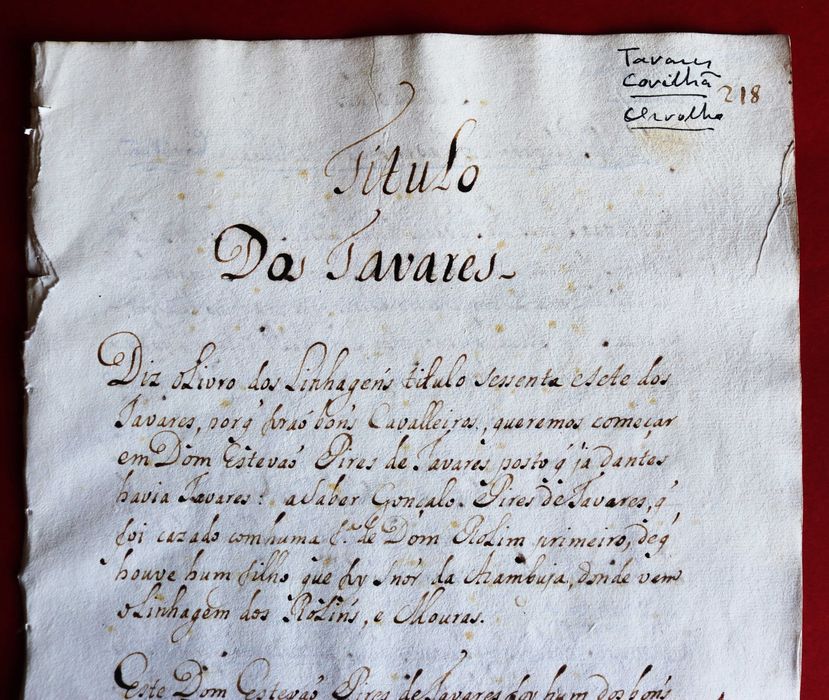 Tavares
Covilhã
218
Carvalho
Titulo
Dos Tavares.
Diz o Livro dos Linhagens titulo sessenta e sete dos
Tavares, porq̃ foraõ bons Cavalleiros, queremos começar
em Dom Estevaõ Pires de Tavares posto q̃ ja dantes
havia Tavares: a saber Gonçalo Pires de Tavares, q̃
foi cazado com huma f.ª de Dom Rolim primeiro, de q̃
houve hum filho que foy Snõr da Azambuja, donde vem
o Linhagem dos Rolins, e Mouras.
Este Dom Estevaõ Pires de Tavares foy hum dos bons